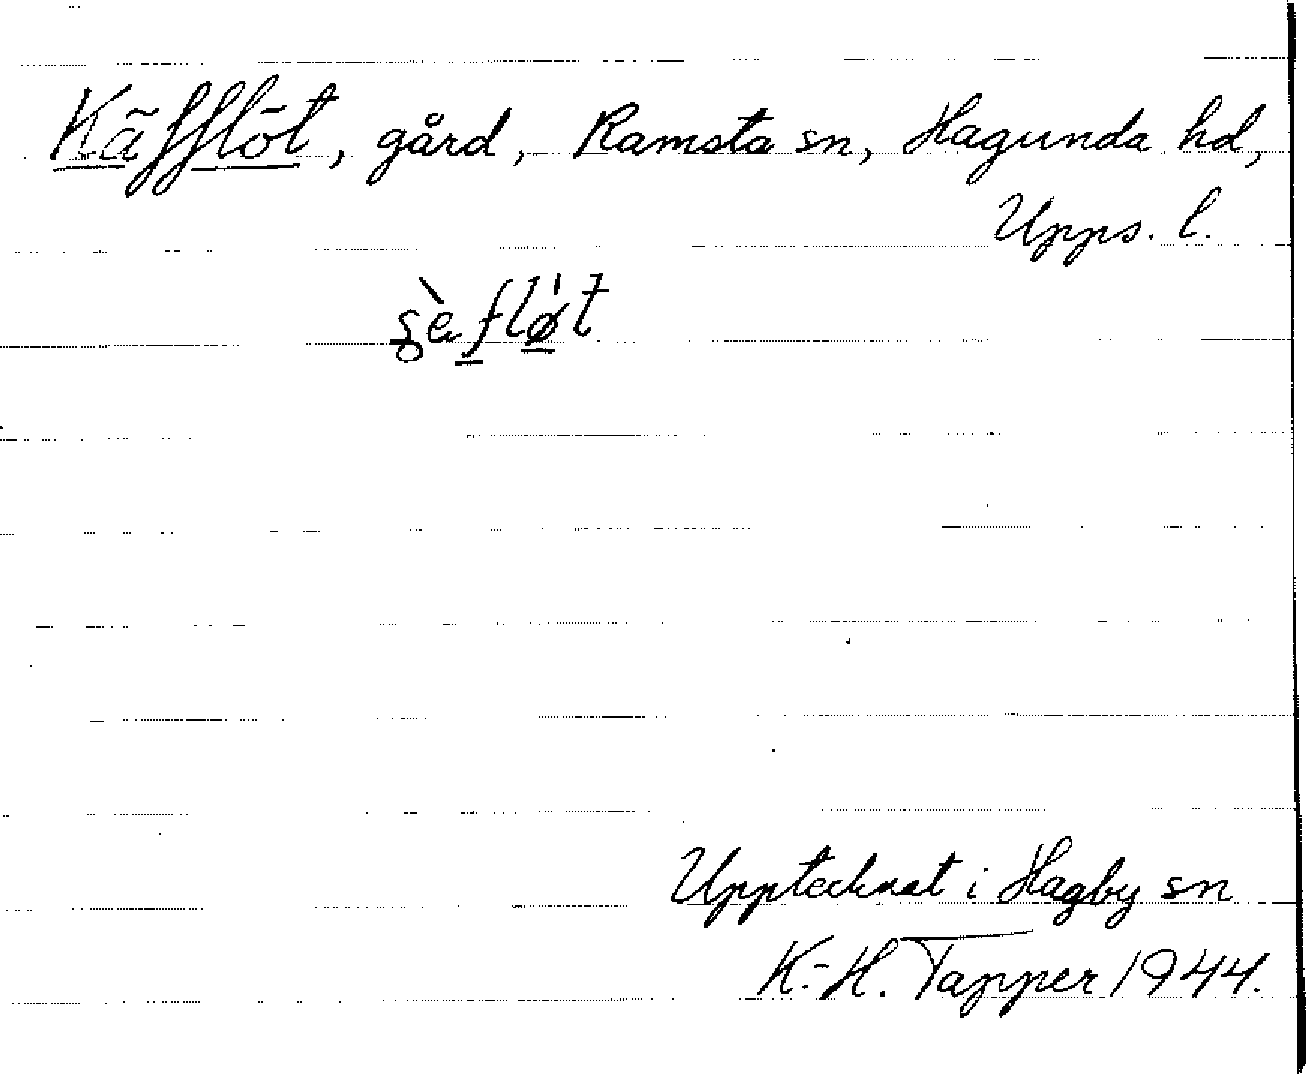 Käfflöt, gård, Ramsta sn, Hagunda hd,
Upps. l.
Upptecknat i Hagby sn
K.-H. Tapper 1944.